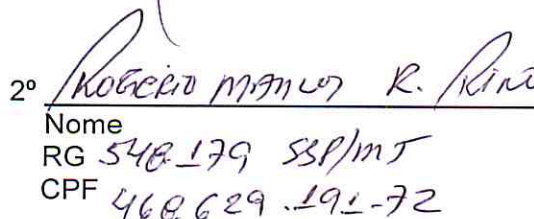 2º Rogério Marcos R.
Nome
RG 548.179 SSP/MT
CPF 468.629.191-72